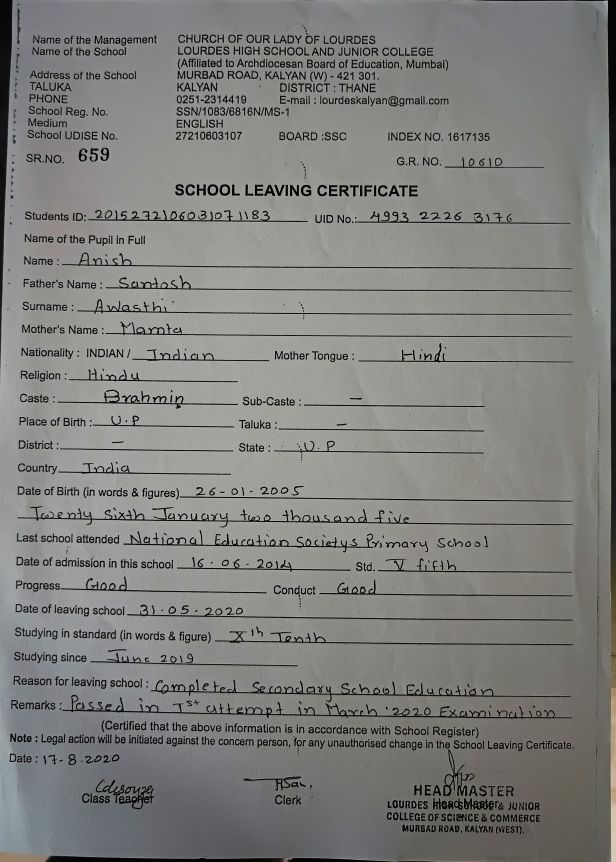 Name of the Management CHURCH OF OUR LADY OF LOURDES
Name of the School LOURDES HIGH SCHOOL AND JUNIOR COLLEGE
(Affiliated to Archdiocesan Board of Education, Mumbai)
Address of the School MURBAD ROAD, KALYAN (W) - 421 301.
TALUKA KALYAN DISTRICT : THANE
PHONE 0251-2314419 E-mail : lourdeskalyan@gmail.com
School Reg. No. SSN/1083/6816N/MS-1
Medium ENGLISH
School UDISE No. 27210603107 BOARD :SSC INDEX NO. 1617135
SR.NO. 659 G.R. NO. 10610
SCHOOL LEAVING CERTIFICATE
Students ID: 2015272106031071183 UID No.: 4993 2226 3176
Name of the Pupil in Full
Name : Anish
Father's Name : Santosh
Surname : Awasthi
Mother's Name : Mamta
Nationality : INDIAN / Indian Mother Tongue : Hindi
Religion : Hindu
Caste : Brahmin Sub-Caste : —
Place of Birth : U.P Taluka : —
District : — State : U.P
Country India
Date of Birth (in words & figures) 26-01-2005
Twenty Sixth January two thousand five
Last school attended National Education Societys Primary School
Date of admission in this school 16-06-2014 Std. V fifth
Progress Good Conduct Good
Date of leaving school 31-05-2020
Studying in standard (in words & figure) Xth Tenth
Studying since June 2019
Reason for leaving school : Completed Secondary School Education
Remarks : Passed in Ist attempt in March '2020 Examination
(Certified that the above information is in accordance with School Register)
Note : Legal action will be initiated against the concern person, for any unauthorised change in the School Leaving Certificate.
Date : 17-8-2020
Class Teacher Clerk HEAD MASTER
Head Master
LOURDES HIGH SCHOOL & JUNIOR
COLLEGE OF SCIENCE & COMMERCE
MURBAD ROAD, KALYAN (WEST).